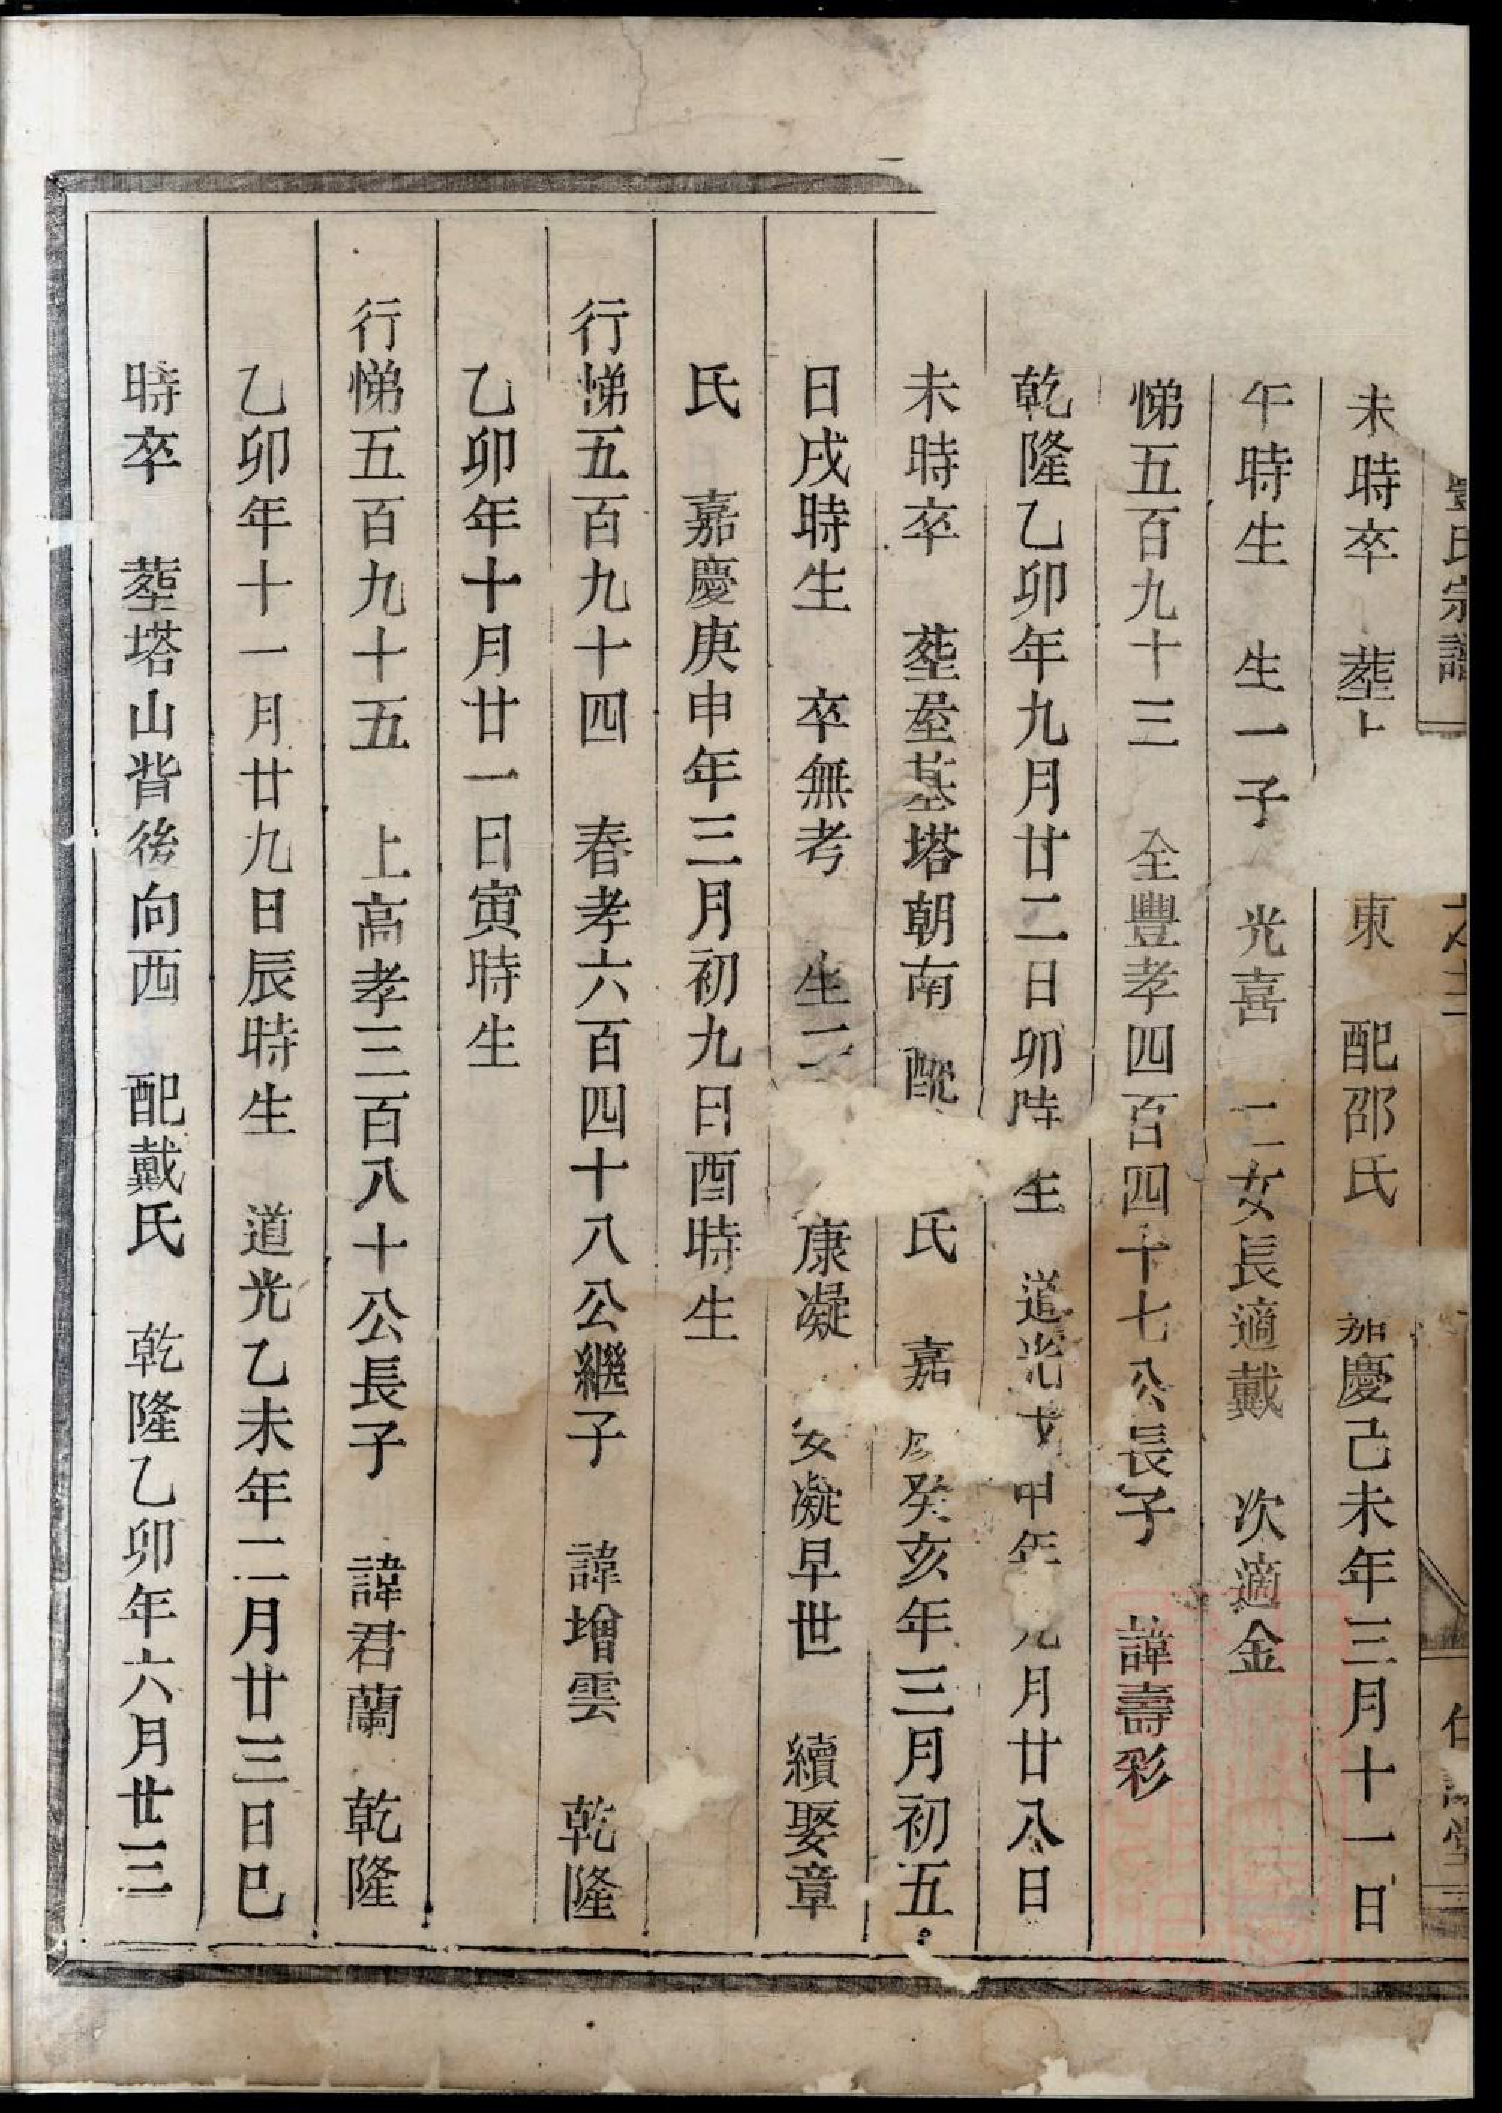 氏宗譜
未時卒 塟 東 配邵氏 嘉慶己未年三月十一日
午時生 生一子 光喜 二女長適戴 次適金
悌五百九十三 全豐孝四百四十七公長子 諱壽彩
乾隆乙卯年九月廿二日卯時生 道光 申年 月廿八日
未時卒 塟屋基塔朝南 配 氏 嘉 癸亥年三月初五
日戌時生 卒無考 生二 康凝 安凝早世 續娶章
氏 嘉慶庚申年三月初九日酉時生
行悌五百九十四 春孝六百四十八公繼子 諱增雲 乾隆
乙卯年十月廿一日寅時生
行悌五百九十五 上高孝三百八十公長子 諱君蘭 乾隆
乙卯年十一月廿九日辰時生 道光乙未年二月廿三日巳
時卒 塟塔山背後向西 配戴氏 乾隆乙卯年六月廿三